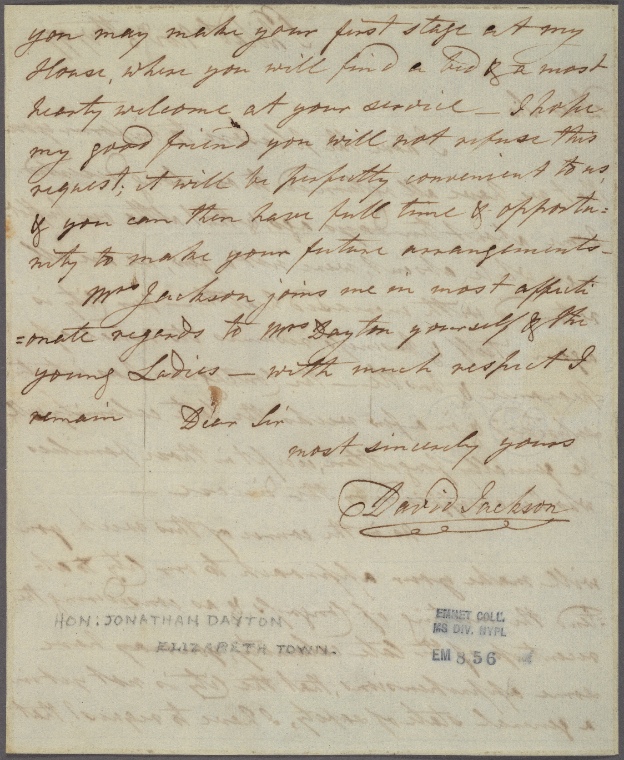 you may make your first stage at my
House, where you will find a bed & a most
hearty welcome at your service — I hope
my good friend you will not refuse this
request; it will be perfectly convenient to us
& you can then have full time & opportu:
nity to make your future arrangements —
Mrs Jackson joins me in most affecti
=onate regards to Mrs Dayton yourself & the
young Ladies — with much respect I
remain Dear Sir
most sincerely yours
David Jackson
HON: JONATHAN DAYTON
ELIZABETH TOWN.
EMMET COLL.
MS DIV. NYPL
EM 856